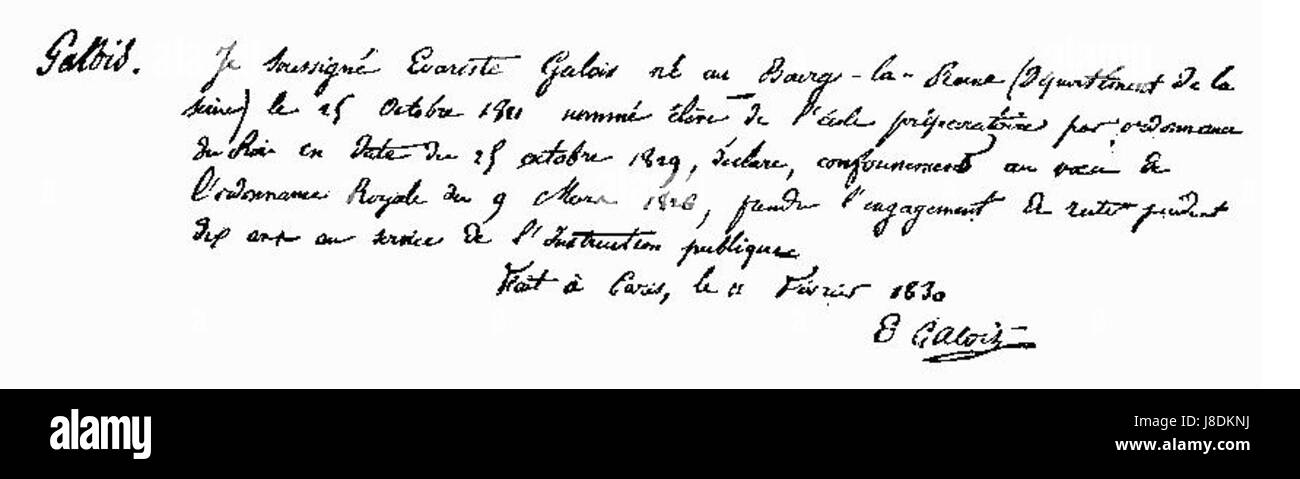 Galois. Je soussigné Evariste Galois né au Bourg-la-Reine (Département de la
Seine) le 25 Octobre 1811 nommé élève de l'école préparatoire par ordonnance
du Roi en date du 25 octobre 1829, déclare, conformément au vœu de
l'ordonnance Royale du 9 Mars 1826, prendre l'engagement de rester pendant
dix ans au service de l'Instruction publique
Fait à Paris, le 11 Février 1830
E Galois
alamy
Image ID: J8DKNJ
www.alamy.com